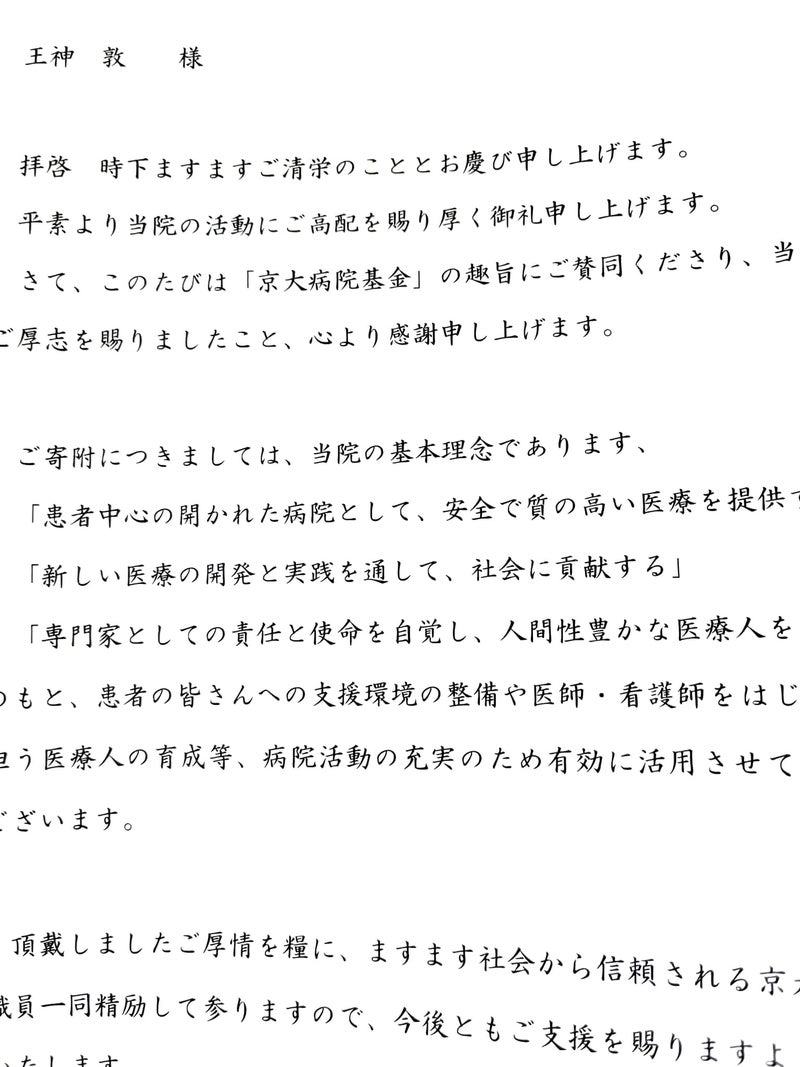 王神　敦　　様
拝啓　時下ますますご清栄のこととお慶び申し上げます。
平素より当院の活動にご高配を賜り厚く御礼申し上げます。
さて、このたびは「京大病院基金」の趣旨にご賛同くださり、当
ご厚志を賜りましたこと、心より感謝申し上げます。
ご寄附につきましては、当院の基本理念であります、
「患者中心の開かれた病院として、安全で質の高い医療を提供す
「新しい医療の開発と実践を通して、社会に貢献する」
「専門家としての責任と使命を自覚し、人間性豊かな医療人を
のもと、患者の皆さんへの支援環境の整備や医師・看護師をはじ
担う医療人の育成等、病院活動の充実のため有効に活用させて
ございます。
頂戴しましたご厚情を糧に、ますます社会から信頼される京大
職員一同精励して参りますので、今後ともご支援を賜りますよ
いたします